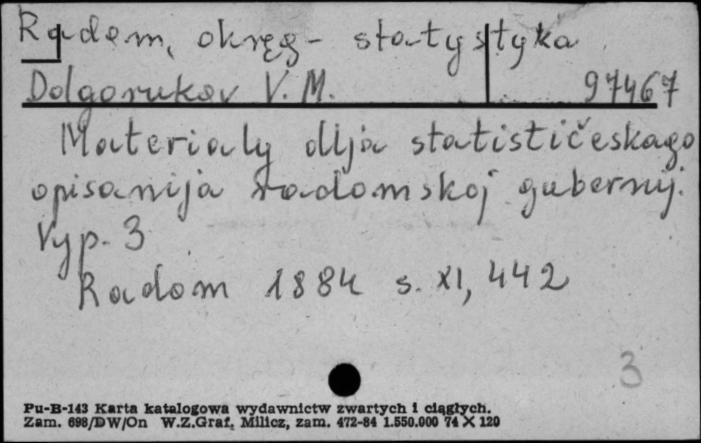 Radom, okręg - statystyka
Dolgorukov V. M. 97467
Materialy dlja statističeskago
opisanija radomskoj gubernij.
Vyp. 3
Radom 1884 s. XI, 442
3
Pu-B-143 Karta katalogowa wydawnictw zwartych i ciągłych.
Zam. 698/DW/On W.Z.Graf. Milicz, zam. 472-84 1.550.000 74 X 120